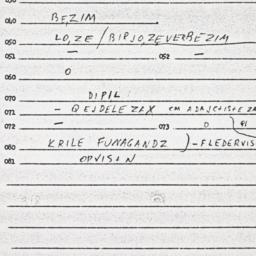 040 BEZIM
050 LO,ZE / BIPJOZEVERBEZIM
051 — 052 —
060 O
070 DIPIL:
071 - QEJDELEZAX
072 — 073 O
080 KRILE FUNAGANDZ ) - FLEDERVIS
081 OPVISIN